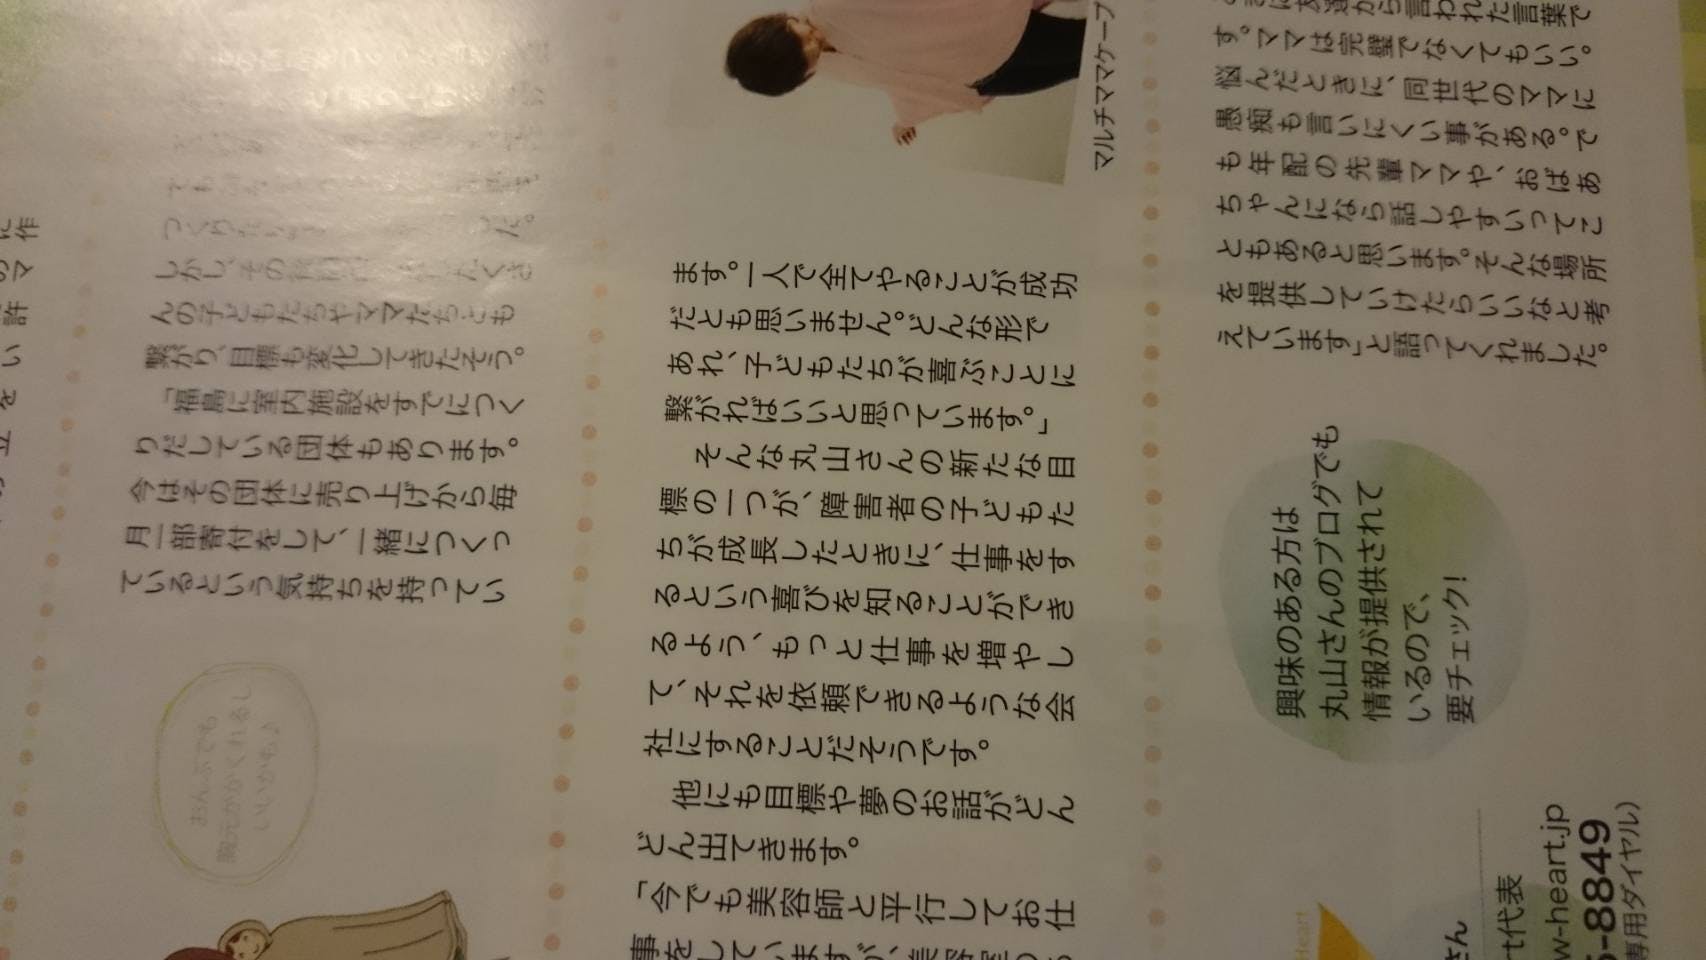 に作
のマ
許
い
を
立
つくりたい
しかし、その
たくさ
んの子どもたちやママたちとも
繋がり、目標も変化してきたそう。
「福島に室内施設をすでにつく
りだしている団体もあります。
今はその団体に売り上げから毎
月一部寄付をして、一緒につくっ
ているという気持ちを持ってい
おんぶでも
胸元のかくれるし
いいかも♪
マルチママケープ
ます。一人で全てやることが成功
だとも思いません。どんな形で
あれ、子どもたちが喜ぶことに
繋がればいいと思っています。」
そんな丸山さんの新たな目
標の一つが、障害者の子どもた
ちが成長したときに、仕事をす
るという喜びを知ることができ
るよう、もっと仕事を増やし
て、それを依頼できるような会
社にすることだそうです。
他にも目標や夢のお話がどん
どん出てきます。
「今でも美容師と平行してお仕
事をしていますが、美容室の
から言われた言葉で
す。ママは完璧でなくてもいい。
悩んだときに、同世代のママに
愚痴も言いにくい事がある。で
も年配の先輩ママや、おばあ
ちゃんになら話しやすいってこ
ともあると思います。そんな場所
を提供していけたらいいなと考
えています」と語ってくれました。
興味のある方は
丸山さんのブログでも
情報が提供されて
いるので、
要チェック!
Heart
さん
rt代表
w-heart.jp
-8849
専用ダイヤル）